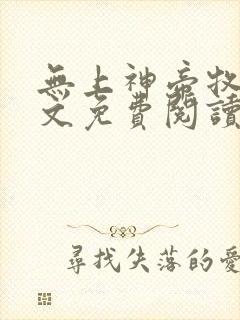 無上神帝牧
文免費閱讀
尋找失落的愛